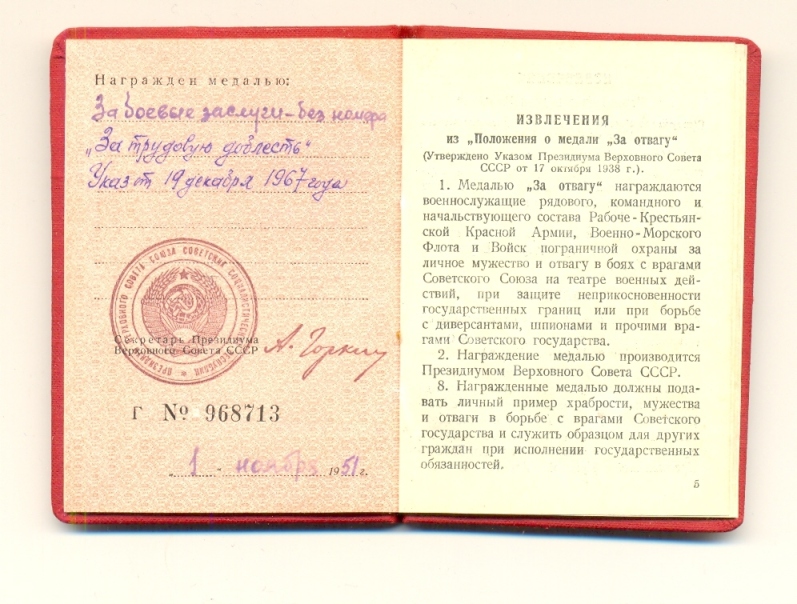 Награжден медалью:
За боевые заслуги - без номера
„За трудовую доблесть"
Указ от 19 декабря 1967 года
ПРЕЗИДИУМ ВЕРХОВНОГО СОВЕТА СОЮЗА СОВЕТСКИХ СОЦИАЛИСТИЧЕСКИХ РЕСПУБЛИК
Секретарь Президиума
Верховного Совета СССР А. Горкин
Г № 968713
„ 1 " ноября 1951 г.
ИЗВЛЕЧЕНИЯ
из „Положения о медали „За отвагу"
(Утверждено Указом Президиума Верховного Совета
СССР от 17 октября 1938 г.).
1. Медалью „За отвагу" награждаются
военнослужащие рядового, командного и
начальствующего состава Рабоче-Крестьян-
ской Красной Армии, Военно-Морского
Флота и Войск пограничной охраны за
личное мужество и отвагу в боях с врагами
Советского Союза на театре военных дей-
ствий, при защите неприкосновенности
государственных границ или при борьбе
с диверсантами, шпионами и прочими вра-
гами Советского государства.
2. Награждение медалью производится
Президиумом Верховного Совета СССР.
8. Награжденные медалью должны пода-
вать личный пример храбрости, мужества
и отваги в борьбе с врагами Советского
государства и служить образцом для других
граждан при исполнении государственных
обязанностей.
5